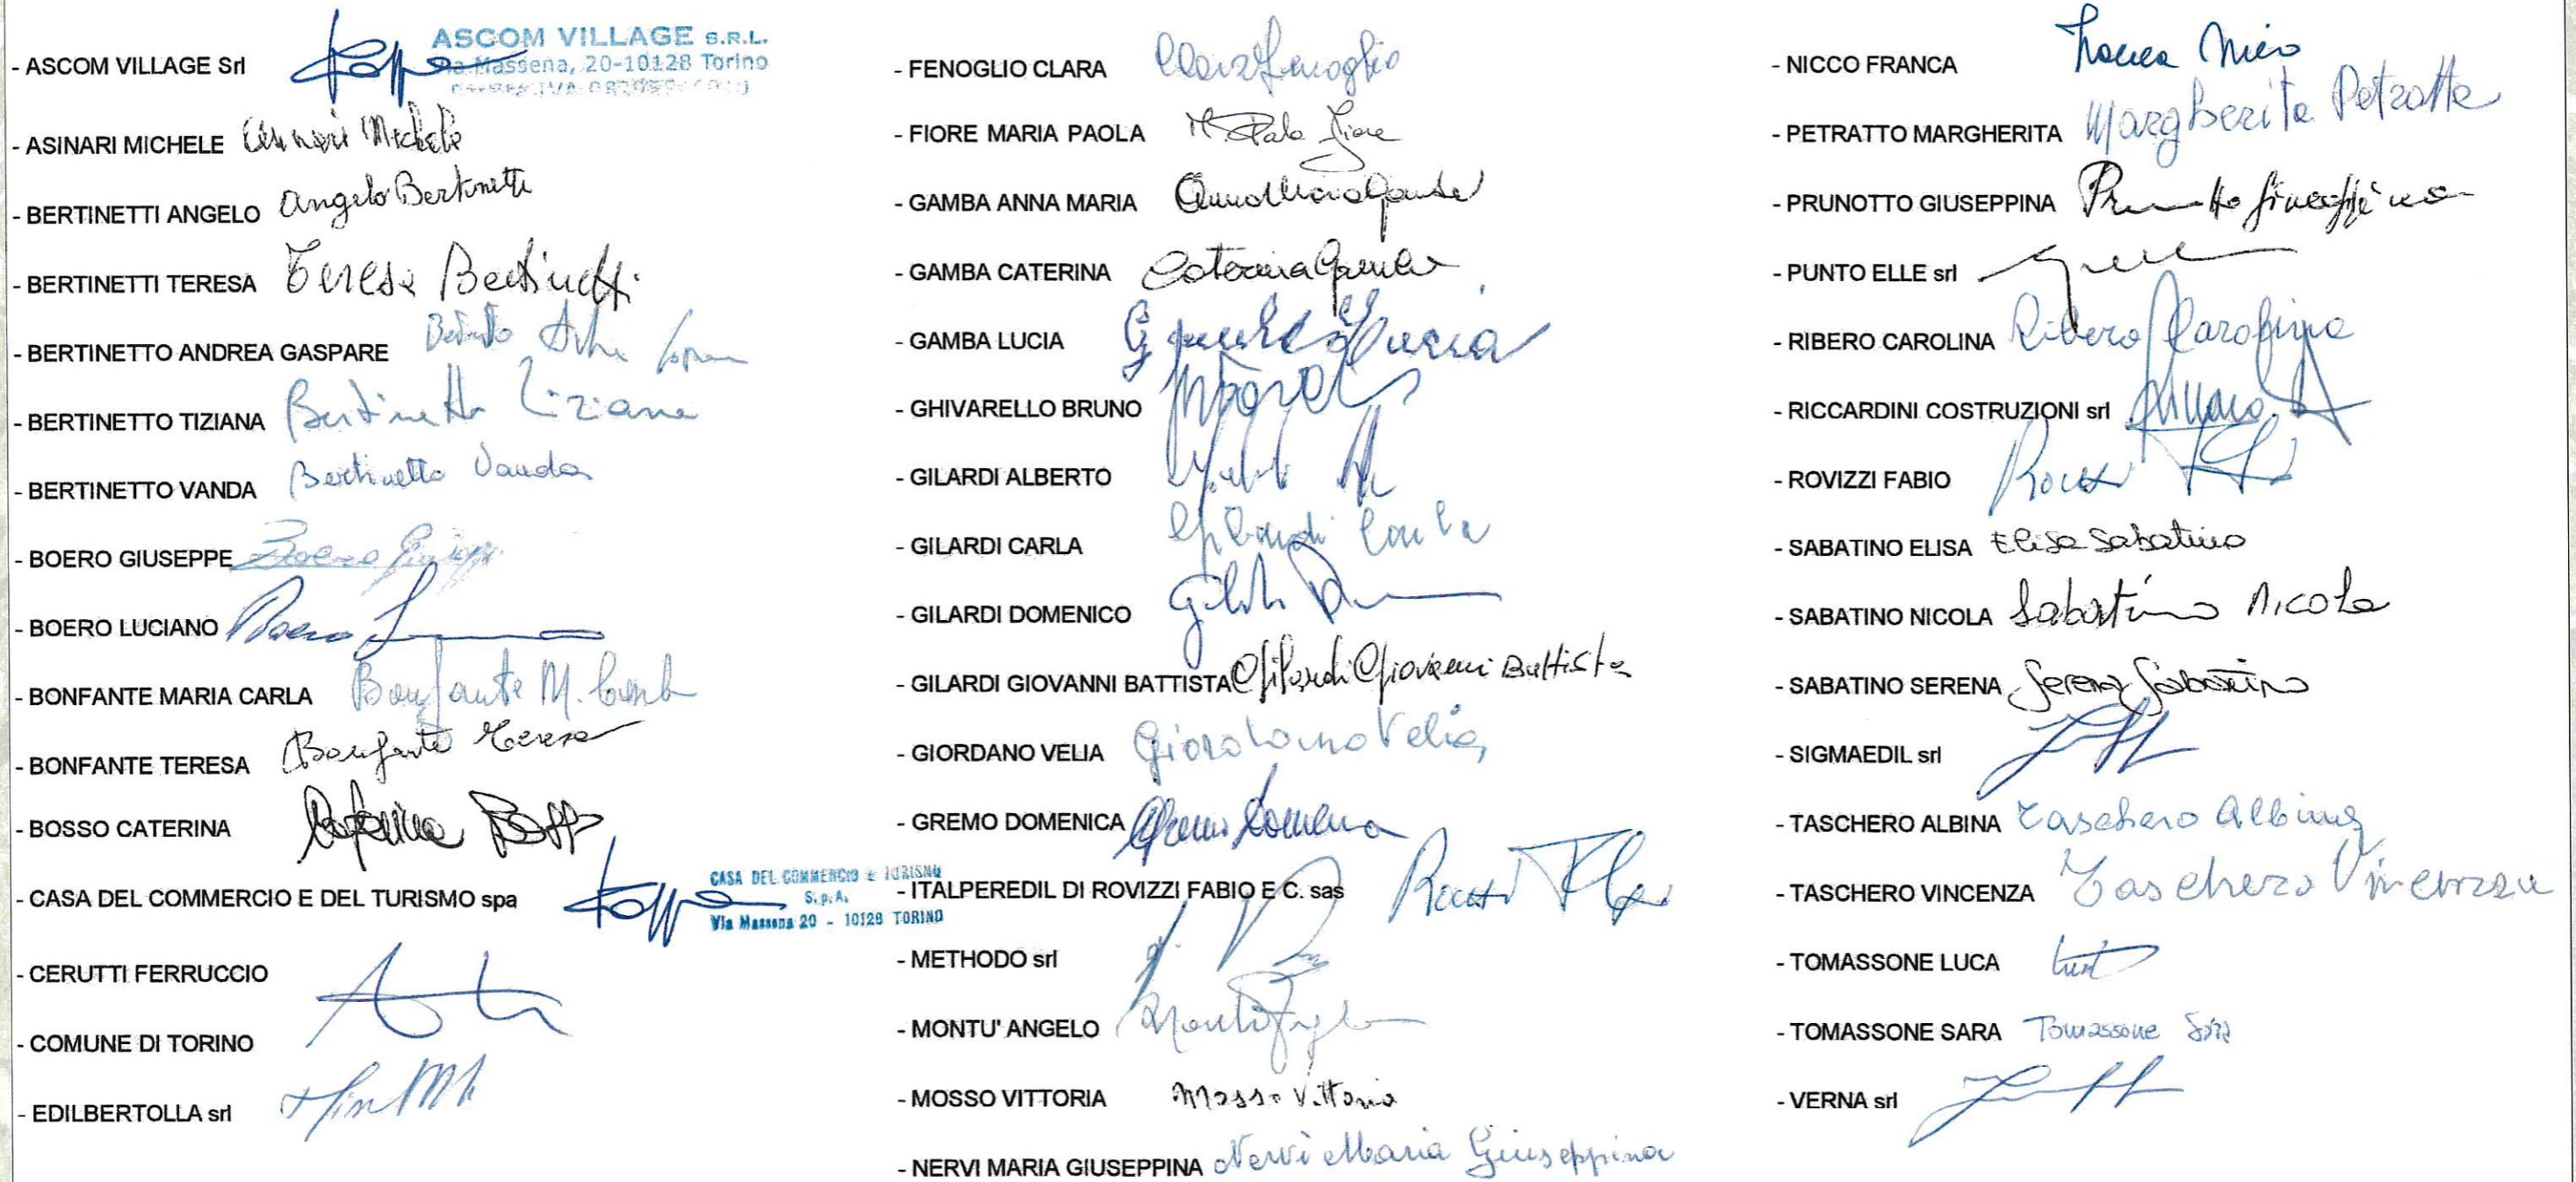 - ASCOM VILLAGE Srl
ASCOM VILLAGE S.R.L.
Via Massena, 20-10128 Torino
- ASINARI MICHELE Asinari Michele
- BERTINETTI ANGELO Angelo Bertinetti
- BERTINETTI TERESA Teresa Bertinetti
- BERTINETTO ANDREA GASPARE
- BERTINETTO TIZIANA Bertinetto Tiziana
- BERTINETTO VANDA Bertinetto Vanda
- BOERO GIUSEPPE Boero Giuseppe
- BOERO LUCIANO Boero
- BONFANTE MARIA CARLA Bonfante M. Carla
- BONFANTE TERESA Bonfante Teresa
- BOSSO CATERINA Caterina Bosso
- CASA DEL COMMERCIO E DEL TURISMO spa
CASA DEL COMMERCIO E TURISMO
S.p.A.
Via Massena 20 - 10128 TORINO
- CERUTTI FERRUCCIO
- COMUNE DI TORINO
- EDILBERTOLLA srl
- FENOGLIO CLARA Clara Fenoglio
- FIORE MARIA PAOLA M. Paola Fiore
- GAMBA ANNA MARIA Anna Maria Gamba
- GAMBA CATERINA Caterina Gamba
- GAMBA LUCIA Gamba Lucia
- GHIVARELLO BRUNO
- GILARDI ALBERTO
- GILARDI CARLA Gilardi Carla
- GILARDI DOMENICO
- GILARDI GIOVANNI BATTISTA Gilardi Giovanni Battista
- GIORDANO VELIA Giordano Velia
- GREMO DOMENICA Gremo Domenica
- ITALPEREDIL DI ROVIZZI FABIO E C. sas
- METHODO srl
- MONTU' ANGELO
- MOSSO VITTORIA Mosso Vittoria
- NERVI MARIA GIUSEPPINA Nervi Maria Giuseppina
- NICCO FRANCA Franca Nicco
- PETRATTO MARGHERITA Margherita Petratto
- PRUNOTTO GIUSEPPINA Prunotto Giuseppina
- PUNTO ELLE srl
- RIBERO CAROLINA Ribero Carolina
- RICCARDINI COSTRUZIONI srl
- ROVIZZI FABIO
- SABATINO ELISA Elisa Sabatino
- SABATINO NICOLA Sabatino Nicola
- SABATINO SERENA Serena Sabatino
- SIGMAEDIL srl
- TASCHERO ALBINA Taschero Albina
- TASCHERO VINCENZA Taschero Vincenza
- TOMASSONE LUCA
- TOMASSONE SARA Tomassone Sara
- VERNA srl